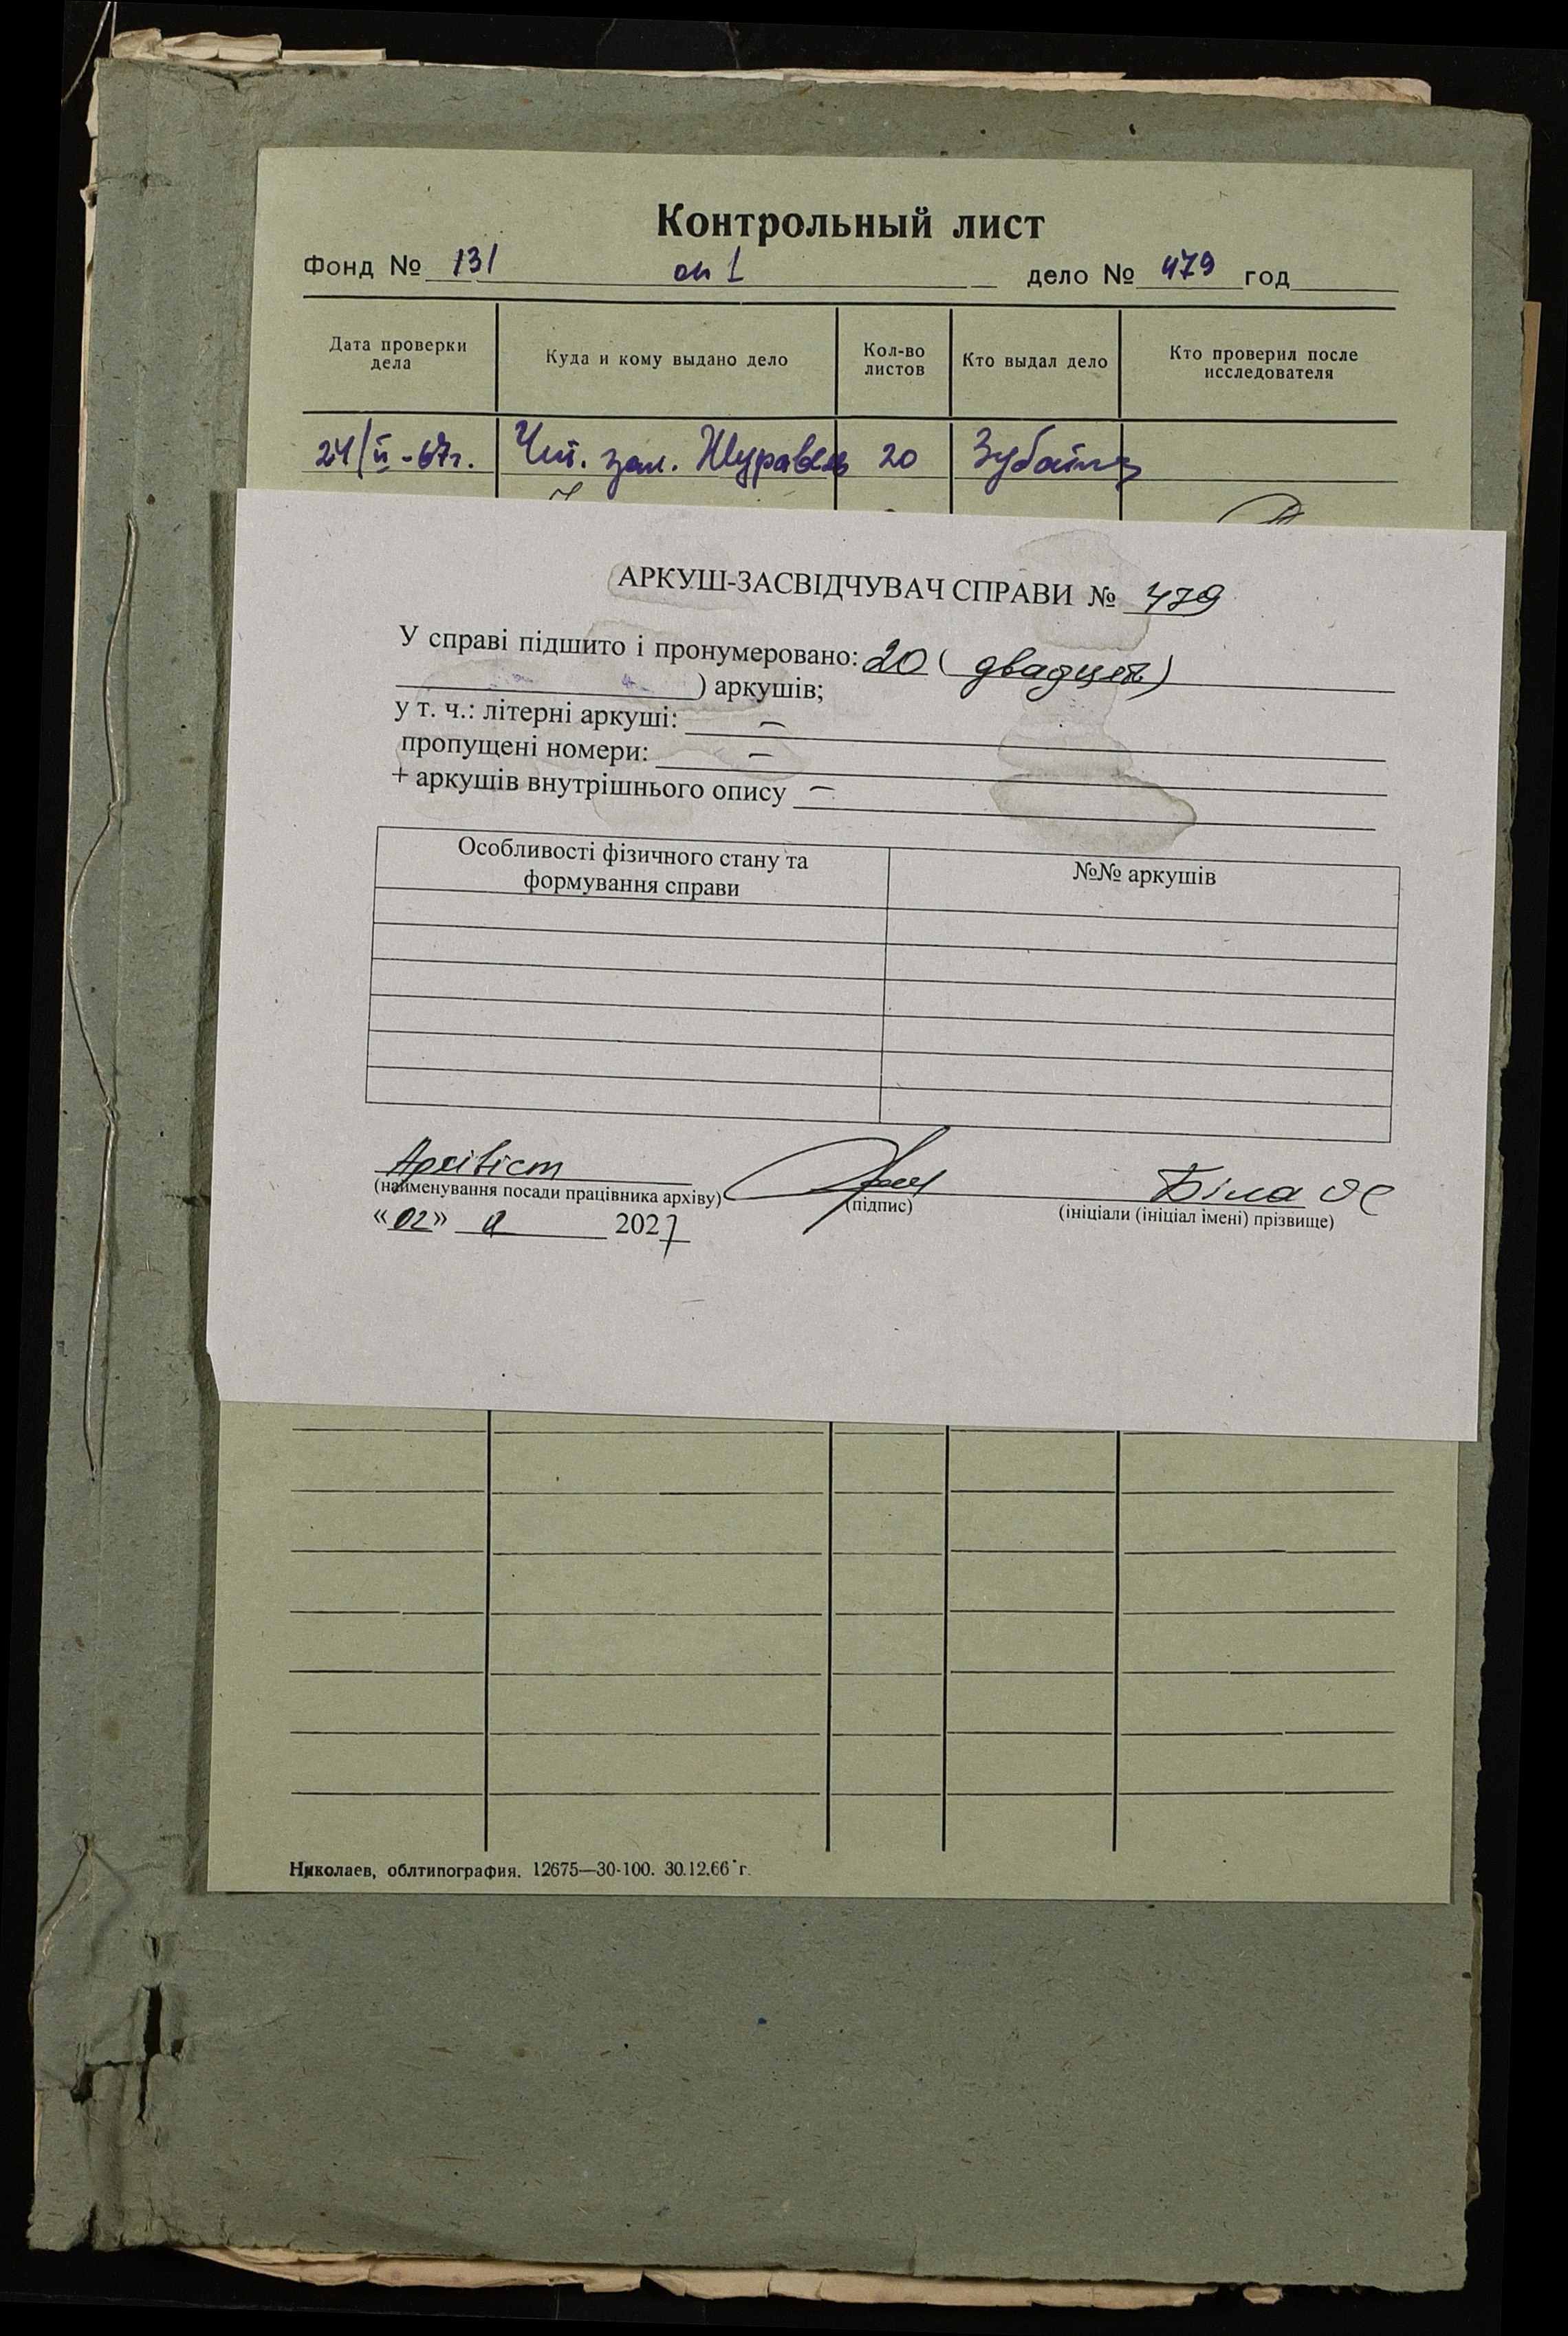 Контрольный лист
Фонд № 131 оп 1 дело № 479 год
Дата проверки дела
Куда и кому выдано дело
Кол-во листов
Кто выдал дело
Кто проверил после исследователя
24/II-67г. Чит. зал. 20
АРКУШ-ЗАСВІДЧУВАЧ СПРАВИ № 479
У справі підшито і пронумеровано: 20 ( двадцять)
) аркушів;
у т. ч.: літерні аркуші: –
пропущені номери: –
+ аркушів внутрішнього опису –
Особливості фізичного стану та
формування справи
№№ аркушів
Архівіст Біла ОС
(найменування посади працівника архіву) (підпис) (ініціали (ініціал імені) прізвище)
«02» 2027
Николаев, облтипография. 12675—30-100. 30.12.66 г.